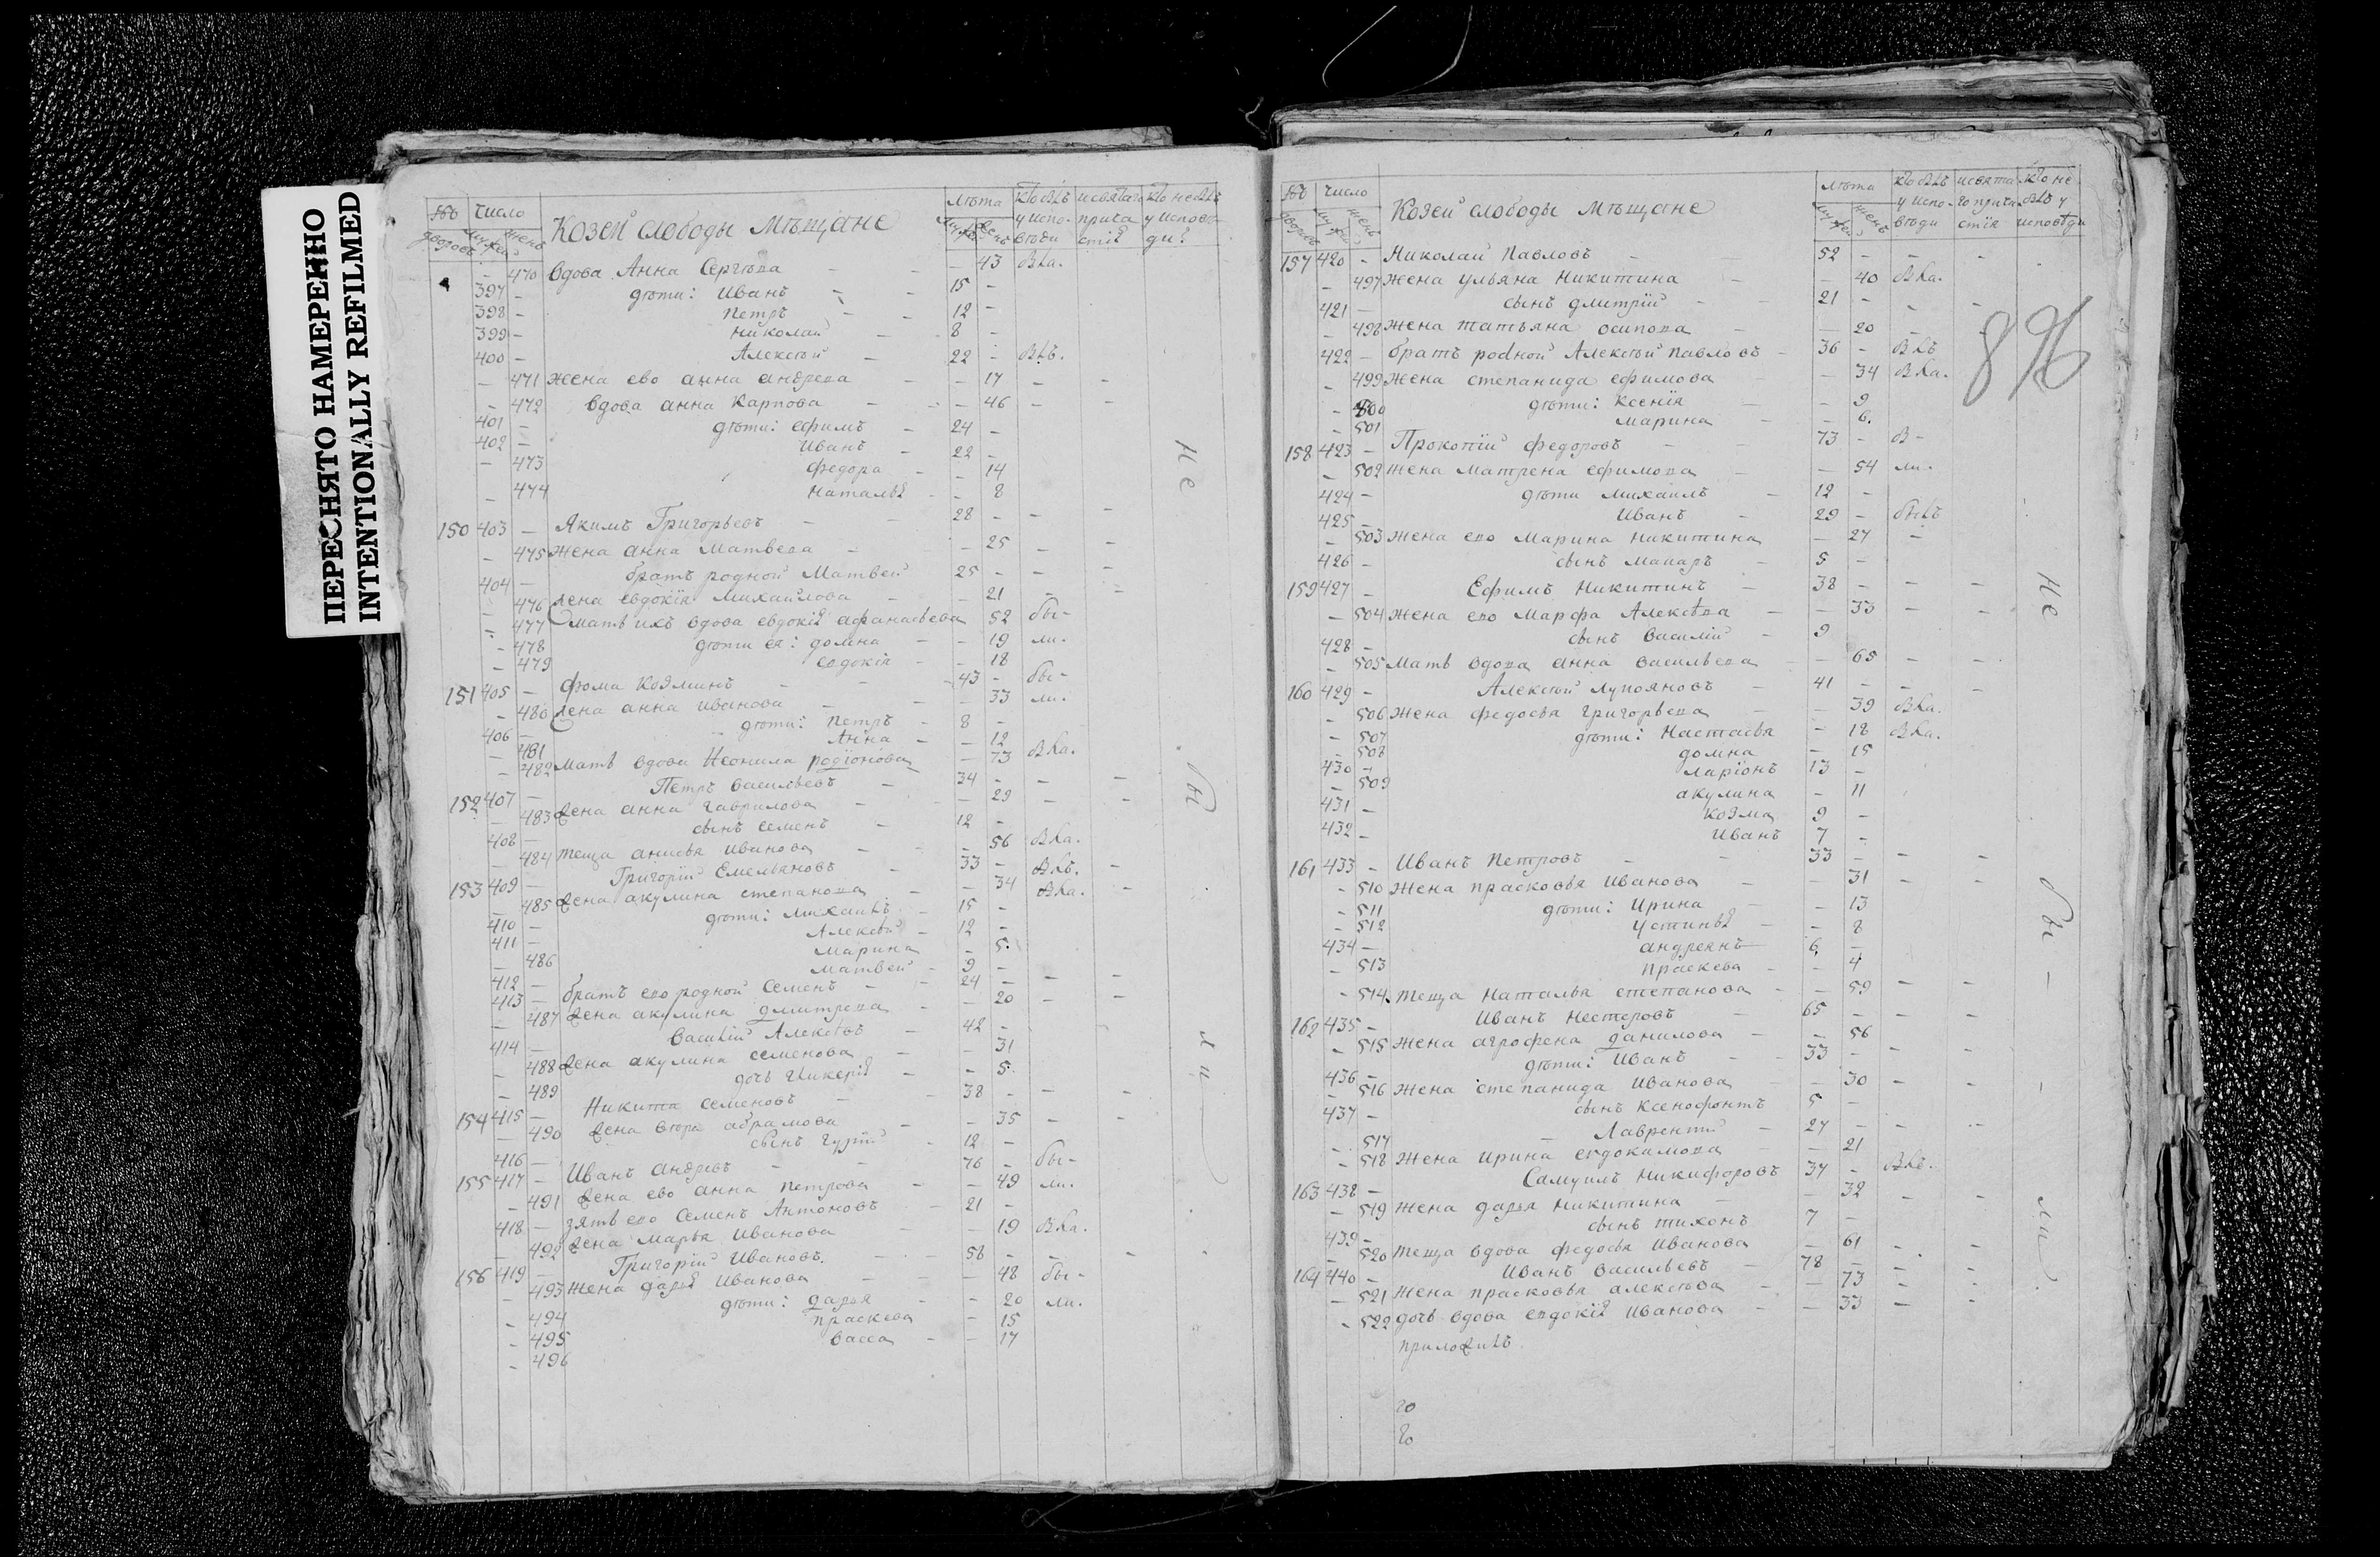 ПЕРЕСНЯТО НАМЕРЕННО
INTENTIONALLY REFILMED
Число
Козей слободы Мѣщане
лѣта
дворовъ
470 вдова Анна Сергѣва - 43 была.
397 - дѣти: Иванъ 15 -
398 - петръ 12 -
399 - николай 8 -
400 - Алексѣй 22 - былъ.
- 471 жена ево анна андрева - 17 - -
- 472 вдова анна Карпова - 46 - -
401 - дѣти: ефимъ 24 -
402 - Иванъ 22 -
- 473 федора - 14
- 474 наталья - 8
150 403 - Якимъ Григорьевъ 28 - - -
- 475 жена анна матвева - 25 - -
404 - братъ родной Матвей 25 - - -
- 476 жена евдокія михайлова - 21 - -
- 477 мать ихъ вдова евдокія афанасьева 52 бы-
- 478 дѣти ея: домна - 19 ли.
- 479 евдокія - 18
151 405 - фома Козминъ 43 - бы-
- 480 жена анна иванова - 33 ли.
406 - дѣти: петръ 8 -
- 481 Анна - 12
- 482 мать вдова Неонила родіонова - 73 была.
152 407 - Петръ васильевъ 34 - - -
- 483 жена анна гаврилова - 29 - -
408 - сынъ семенъ 12 -
- 484 теща анисья иванова - 56 была.
153 409 - Григорій Емельяновъ 33 - былъ. -
- 485 жена акулина степанова - 34 была. -
410 - дѣти: михаилъ 15 -
411 - Алексѣй 12 -
- 486 марина - 5.
412 - матвей 9 -
413 - братъ ево родной семенъ 24 - - -
- 487 жена акулина дмитрева - 20 - -
414 - василій Алексѣвъ 42 -
- 488 жена акулина семенова - 31
- 489 дочь гликерія - 5
154 415 - Никита семеновъ 38 - - -
- 490 жена вѣра абрамова - 35 - -
416 - сынъ гурій 12 -
155 417 - Иванъ андревъ 76 - бы-
- 491 жена ево анна петрова - 49 ли.
418 - зять ево семенъ Антоновъ 21 -
- 492 жена марья иванова - 19 была.
156 419 - Григорій Ивановъ. 58 - - -
- 493 жена дарья иванова - 48 бы-
- 494 дѣти: дарья - 20 ли.
- 495 праскева - 15
- 496 васса - 17
не
бы
ли
Число
Козей слободы мѣщане
лѣта
896
157 420 - Николай павловъ 52 - - -
- 497 жена ульяна никитина - 40 была.
421 - сынъ дмитрій 21 - - -
- 498 жена татьяна осипова - 20 -
422 - братъ родной Алексѣй павловъ 36 - былъ
- 499 жена степанида ефимова - 34 была.
- 500 дѣти: Ксенія - 9
- 501 марина - 6.
158 423 - Прокопій федоровъ 73 - бы-
- 502 жена матрена ефимова - 54 ли.
424 - дѣти михаилъ 12 -
425 - Иванъ 29 - былъ
- 503 жена ево марина никитина - 27 -
426 - сынъ макаръ 5 -
159 427 - Ефимъ никитинъ 38 - - -
- 504 жена ево марфа Алексѣва - 33 - -
428 - сынъ василій 9
- 505 мать вдова анна васильева - 65 - -
160 429 - Алексѣй лупояновъ 41 - - -
- 506 жена федосья григорьева - 39 была.
- 507 дѣти: настасья - 18 была.
- 508 домна - 15
430 - ларіонъ 13 -
- 509 акулина - 11
431 - козма 9 -
432 - иванъ 7 -
161 433 - Иванъ петровъ 33 - - -
- 510 жена прасковья иванова - 31 - -
- 511 дѣти: ирина - 13
- 512 устинья - 8
434 - андреянъ 6 -
- 513 праскева - 4
- 514 теща наталья степанова - 59 - -
162 435 - Иванъ нестеровъ 65 - - -
- 515 жена агрофена данилова - 56
436 - дѣти: иванъ 33 - - -
- 516 жена степанида иванова - 30 - -
437 - сынъ ксенофонтъ 5 -
- 517 - Лаврентій 27 - - -
- 518 жена ирина евдокимова - 21
163 438 - Самуилъ никифоровъ 37 - былъ.
- 519 жена дарья никитина - 32 - -
439 - сынъ тихонъ 7 -
- 520 теща вдова федосья иванова - 61 - -
164 440 - Иванъ васильевъ 78 - - -
- 521 жена прасковья алексѣва - 73 - -
- 522 дочь вдова евдокія иванова - 33 - -
приложилъ
не
бы -
ли